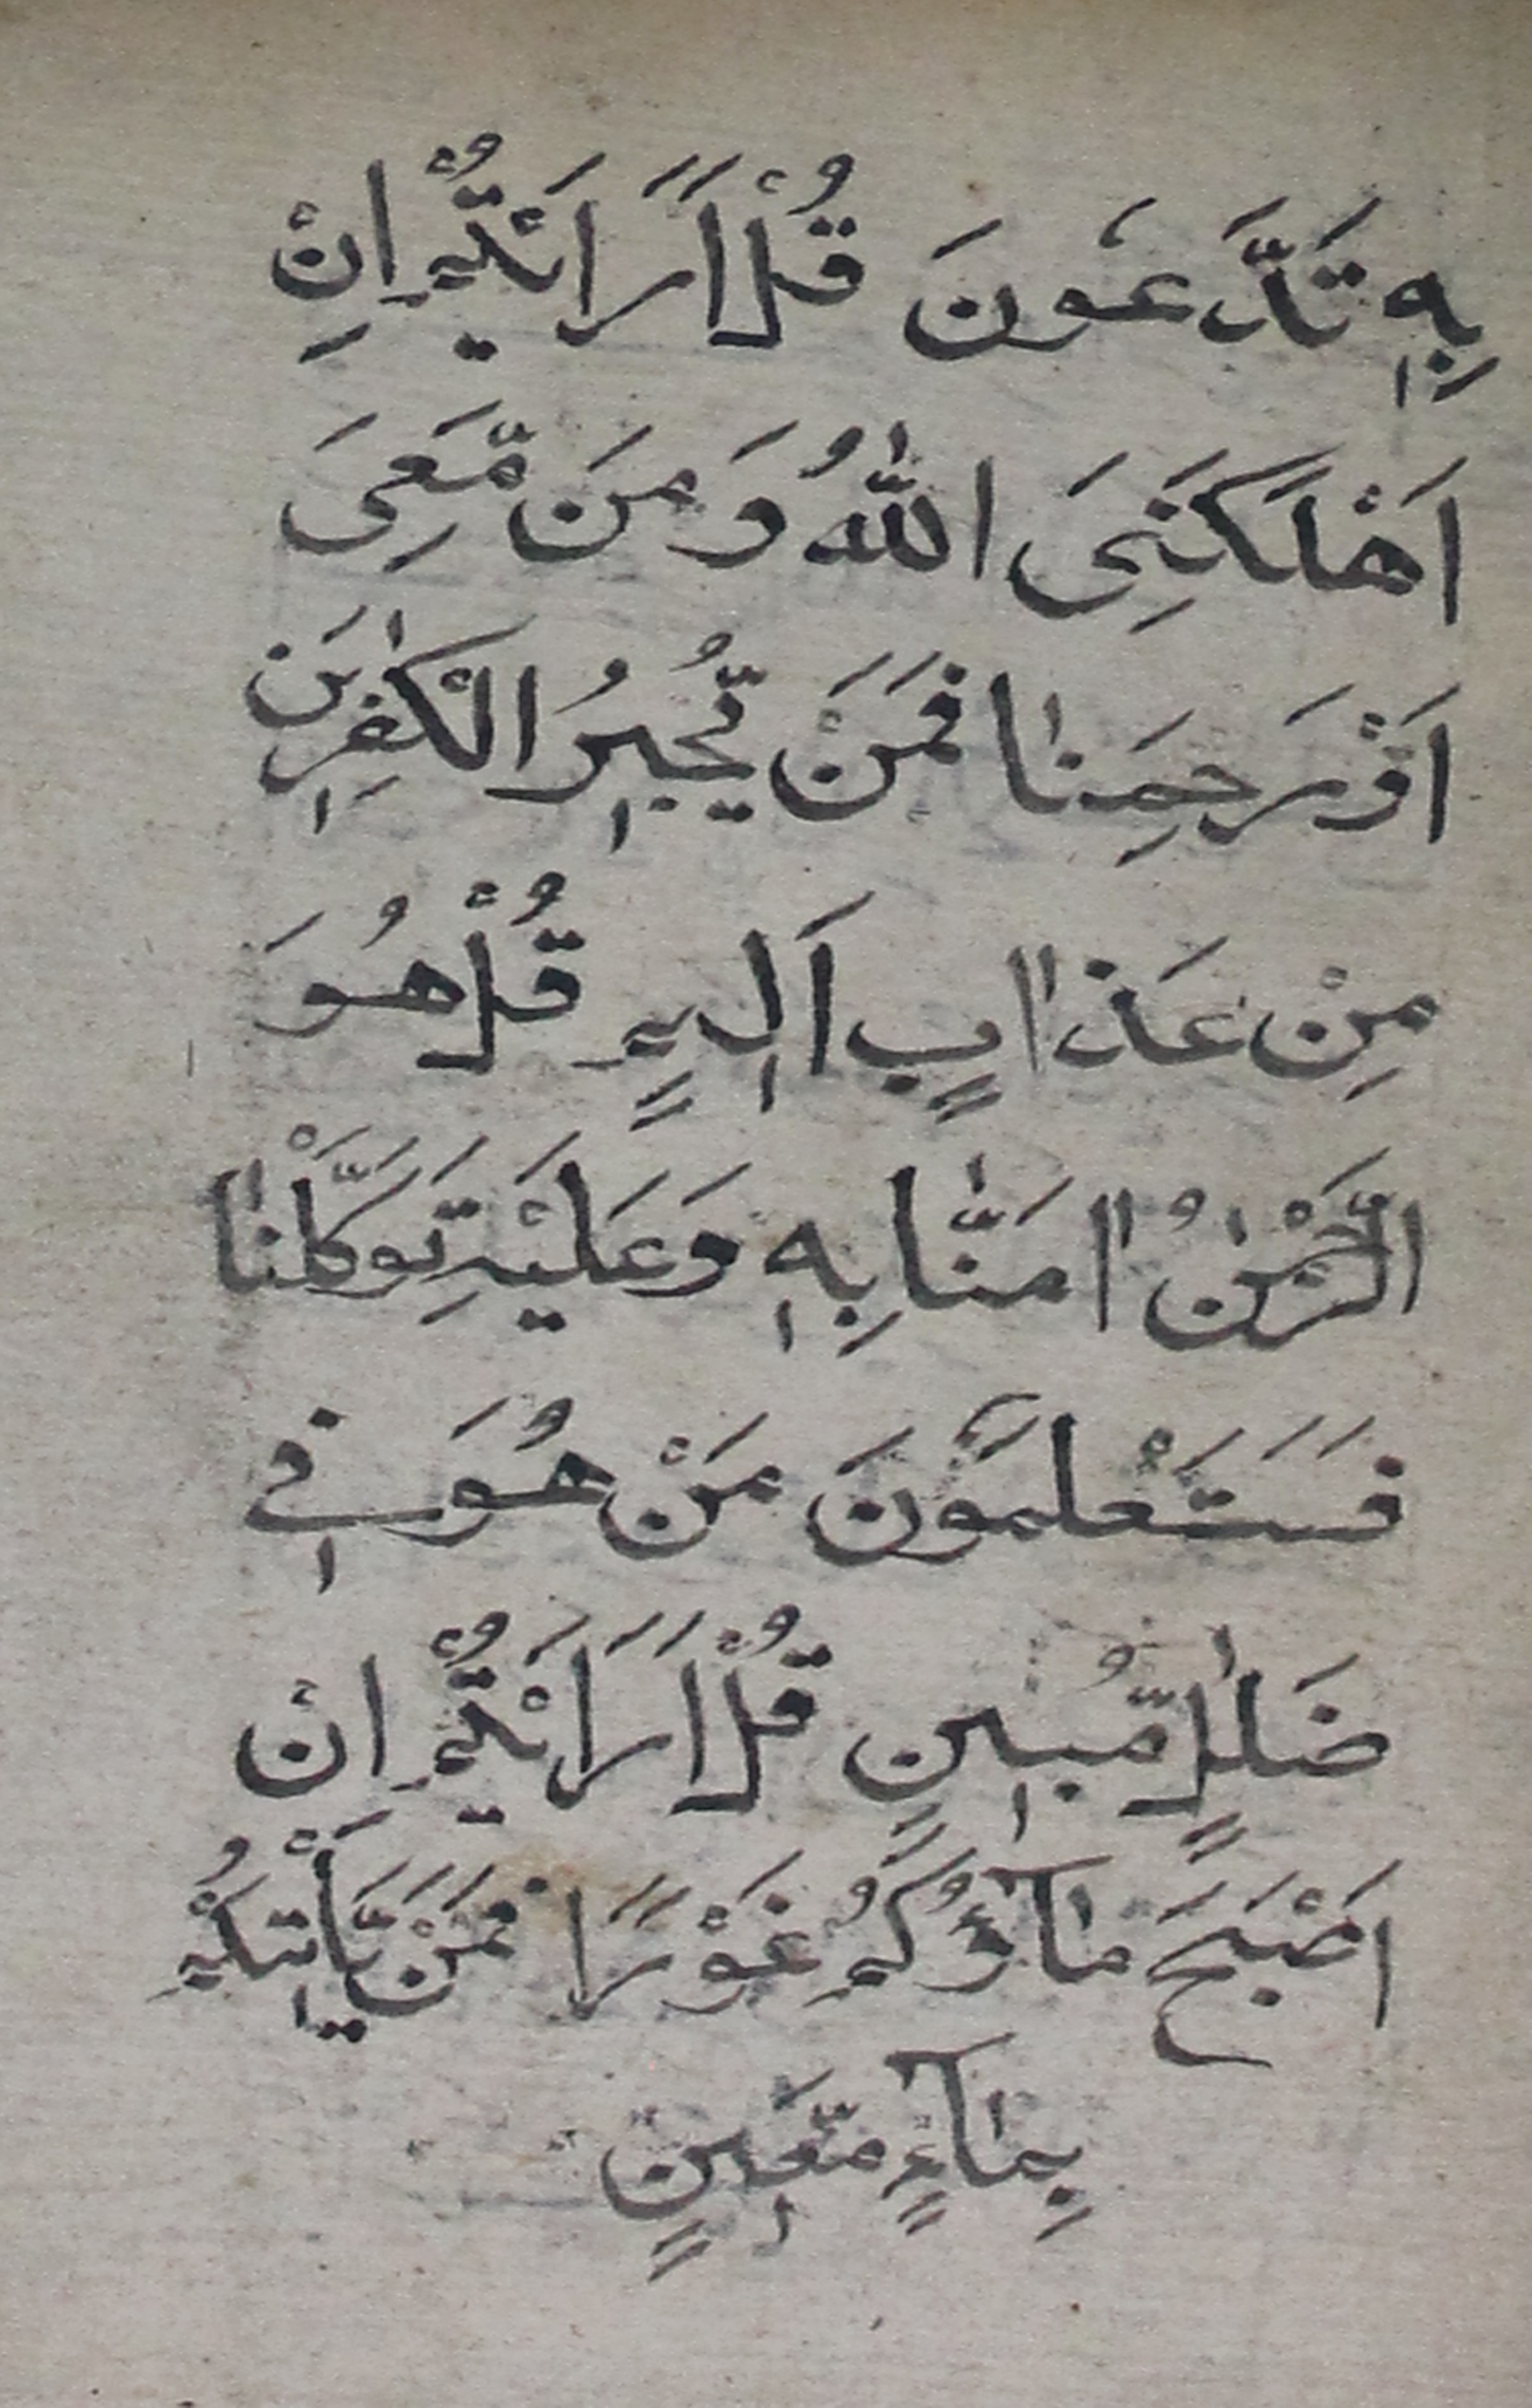 بِهٖ تَدَّعُونَ قُلْ اَرَاَيْتُمْ اِنْ
اَهْلَكَنِيَ اللّٰهُ وَمَنْ مَّعِيَ
اَوْ رَحِمَنٰا فَمَنْ يُّجِيْرُ الْكٰفِرِيْنَ
مِنْ عَذٰابٍ اَلِيْمٍ قُلْ هُوَ
الرَّحْمٰنُ اٰمَنّٰا بِهٖ وَعَلَيْهِ تَوَكَّلْنٰا
فَسَتَعْلَمُونَ مَنْ هُوَ فِي
ضَلٰلٍ مُّبِيْنٍ قُلْ اَرَاَيْتُمْ اِنْ
اَصْبَحَ مٰآؤُكُمْ غَوْرًا فَمَنْ يَّاْتِيْكُمْ
بِمٰآءٍ مَّعِيْنٍ